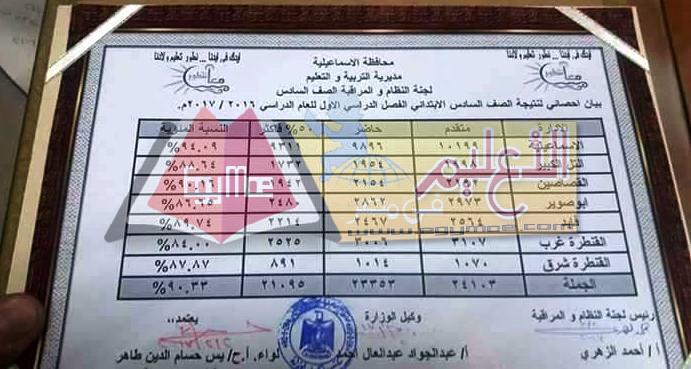 محافظة الاسماعيلية
مديرية التربية و التعليم
لجنة النظام و المراقبة الصف السادس
ايدك فى ايدنا ... نطور تعليم ولادنا
ايدك فى ايدنا ... نطور تعليم ولادنا
بيان احصائي لنتيجة الصف السادس الابتدائي الفصل الدراسي الاول للعام الدراسي ٢٠١٦ / ٢٠١٧م.
الإدارة متقدم حاضر ٥٠% فأكثر النسبة المئوية
الاسماعيلية ١٠١٩٩ ٩٨٩٦ ٩٣١١ %٩٤.٠٩
التل الكبير ١٩٩٨ ١٩٥٤ ١٧٣٢ %٨٨.٦٤
القصاصين ٢١٥٤ ١٩٤٢ %٩٠.١٦
ابوصوير ٢٩٧٣ ٢٨٦٢ ٢٤٨٠ %٨٦.٦٥
فايد ٢٥٦٤ ٢٤٦٧ ٢٢١٤ %٨٩.٧٤
القنطرة غرب ٣١٠٧ ٣٠٠٦ ٢٥٢٥ %٨٤.٠٠
القنطرة شرق ١٠٧٠ ١٠١٤ ٨٩١ %٨٧.٨٧
الجملة ٢٤١٠٣ ٢٣٣٥٣ ٢١٠٩٥ %٩٠.٣٣
رئيس لجنة النظام و المراقبة وكيل الوزارة يعتمد،،
أ / أحمد الزهري أ/ عبدالجواد عبدالعال احمد لواء. أ.ح/ يس حسام الدين طاهر